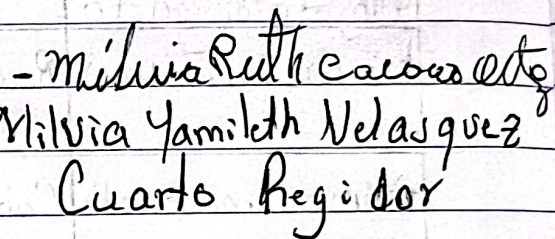 - Milvia Ruth
Milvia Yamileth Velasquez
Cuarto Regidor